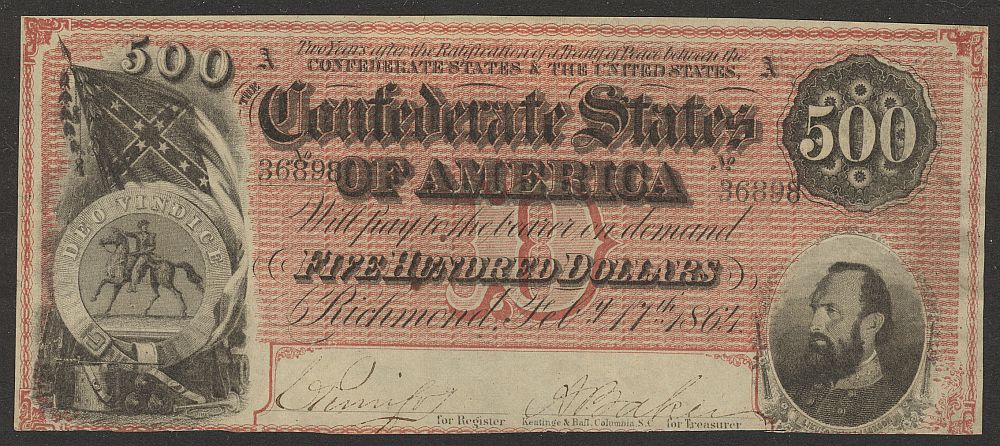 500
A
Two Years after the Ratification of a Treaty of Peace between the
CONFEDERATE STATES & THE UNITED STATES,
A
THE
Confederate States
OF AMERICA
500
No
36898
No
36898
Will pay to the bearer on demand
FIVE HUNDRED DOLLARS
Richmond, Feby. 17th 1864
DEO VINDICE
for Register
Keatinge & Ball, Columbia, S.C.
for Treasurer